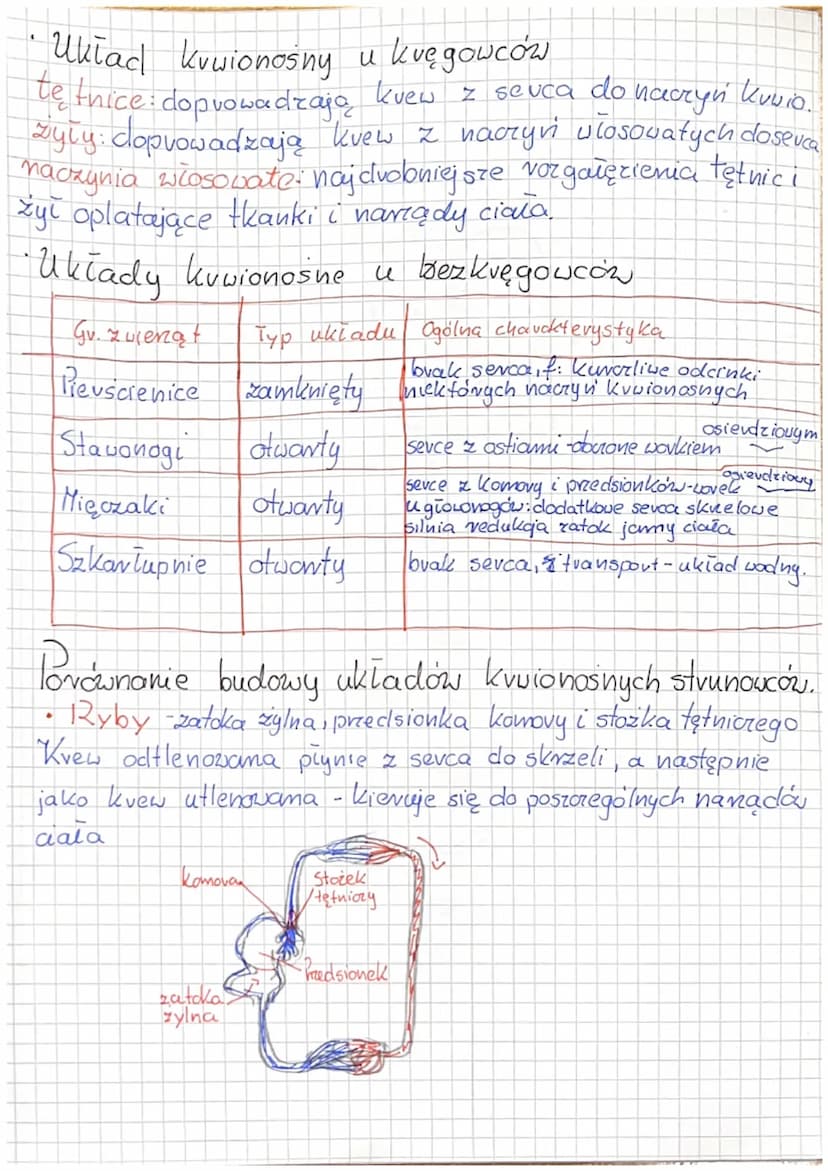 • Układ krwionośny u kręgowców
tętnice: doprowadzają krew z serca do naczyń krwio.
żyły: doprowadzają krew z naczyń włosowatych do serca
naczynia włosowate: najdrobniejsze rozgałęzienia tętnic i
żył oplatające tkanki i narządy ciała.
• Układy krwionośne u bezkręgowców
Gr. zwierząt Typ układu Ogólna charakterystyka
Pierścienice zamknięty brak serca, f: kurczliwe odcinki
niektórych naczyń krwionośnych
Stawonogi otwarty serce z ostiami - otoczone workiem osierdziowym
Mięczaki otwarty serce z komory i przedsionków - worek osierdziowy
u głowonogów: dodatkowe serca skrzelowe
silnia redukcja zatok jamy ciała
Szkarłupnie otwarty brak serca, transport - układ wodny.
Porównanie budowy układów krwionośnych strunowców.
• Ryby - zatoka żylna, przedsionka komory i stożka tętniczego
Krew odtlenowana płynie z serca do skrzeli, a następnie
jako krew utlenowana - kieruje się do poszczególnych narządów
ciała
komora
Stożek
tętniczy
Przedsionek
zatoka
żylna